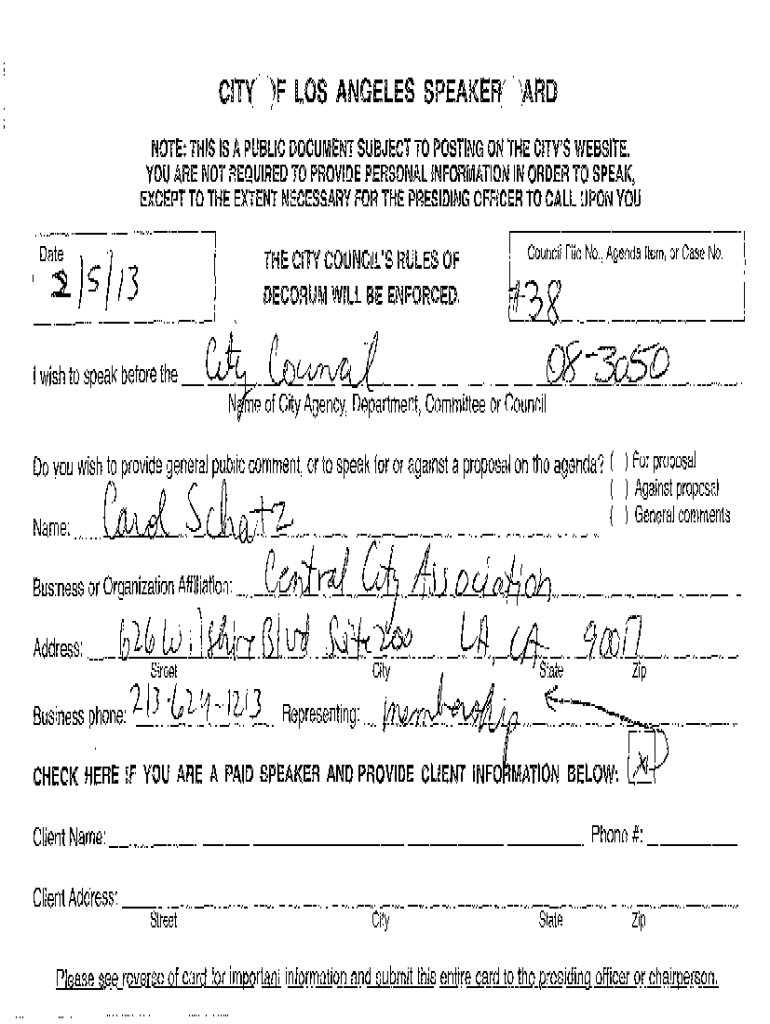 CITY OF LOS ANGELES SPEAKER CARD
NOTE: THIS IS A PUBLIC DOCUMENT SUBJECT TO POSTING ON THE CITY'S WEBSITE.
YOU ARE NOT REQUIRED TO PROVIDE PERSONAL INFORMATION IN ORDER TO SPEAK,
EXCEPT TO THE EXTENT NECESSARY FOR THE PRESIDING OFFICER TO CALL UPON YOU
Date
2/5/13
THE CITY COUNCIL'S RULES OF
DECORUM WILL BE ENFORCED.
Council File No., Agenda Item, or Case No.
#38
I wish to speak before the City Council 08-3050
Name of City Agency, Department, Committee or Council
Do you wish to provide general public comment, or to speak for or against a proposal on the agenda? ( ) For proposal
( ) Against proposal
( ) General comments
Name: Carol Schatz
Business or Organization Affiliation: Central City Association
Address: 626 Wilshire Blvd Suite 200 LA, CA 90017
Street City State Zip
Business phone: 213-624-1213 Representing: membership
CHECK HERE IF YOU ARE A PAID SPEAKER AND PROVIDE CLIENT INFORMATION BELOW: X
Client Name: Phone #:
Client Address:
Street City State Zip
Please see reverse of card for important information and submit this entire card to the presiding officer or chairperson.